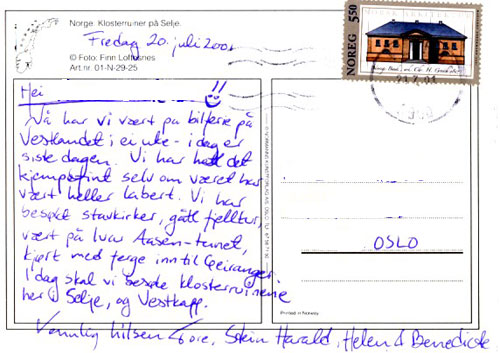 Norge: Klosterruiner på Selje.
Fredag 20. juli 2001
© Foto: Finn Loftesnes
Art.nr. 01-N-29-25
NOREG 5,50
Hei!!
Nå har vi vært på bilferie på
Vestlandet i ei uke - i dag er
siste dagen. Vi har hatt det
kjempefint selv om været har
vært heller labert. Vi har
besøkt stavkirker, gått fjelltur,
vært på Ivar Aasen-tunet,
kjørt med ferge inn til Geiranger.
I dag skal vi besøke klosterruinene
her i Selje, og Vestkapp.
Vennlig hilsen Tore, Stein Harald, Helen & Benedicte
OSLO
Printed in Norway